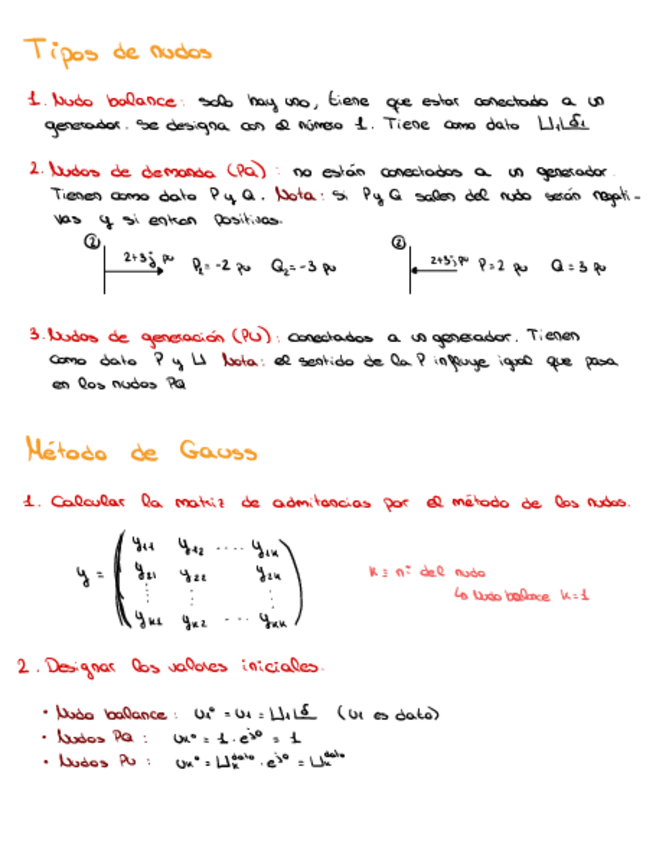 Tipos de nudos
1. Nudo balance: solo hay uno, tiene que estar conectado a un
generador. Se designa con el número 1. Tiene como dato U₁∠δ₁
2. Nudos de demanda (PQ): no están conectados a un generador.
Tienen como dato P y Q. Nota: si P y Q salen del nudo serán negati-
vas y si entran positivas.
② 2+3j pu P₂=-2 pu Q₂=-3 pu ② 2+3j pu P=2 pu Q=3 pu
3. Nudos de generación (PU): conectados a un generador. Tienen
como dato P y U Nota: el sentido de la P influye igual que pasa
en los nudos PQ
Método de Gauss
1. Calcular la matriz de admitancias por el método de los nudos.
y₁₁ y₁₂ .... y₁ₖ
y = y₂₁ y₂₂ y₂ₖ
yₖ₁ yₖ₂ ... yₖₖ
k = nº del nudo
↳ Nudo balance k=1
2. Designar los valores iniciales.
• Nudo balance: u₁⁰ = u₁ = U₁∠δ (u₁ es dato)
• Nudos PQ: uₖ⁰ = 1·e^j0 = 1
• Nudos PU: uₖ⁰ = Uₖ^dato · e^j0 = Uₖ^dato